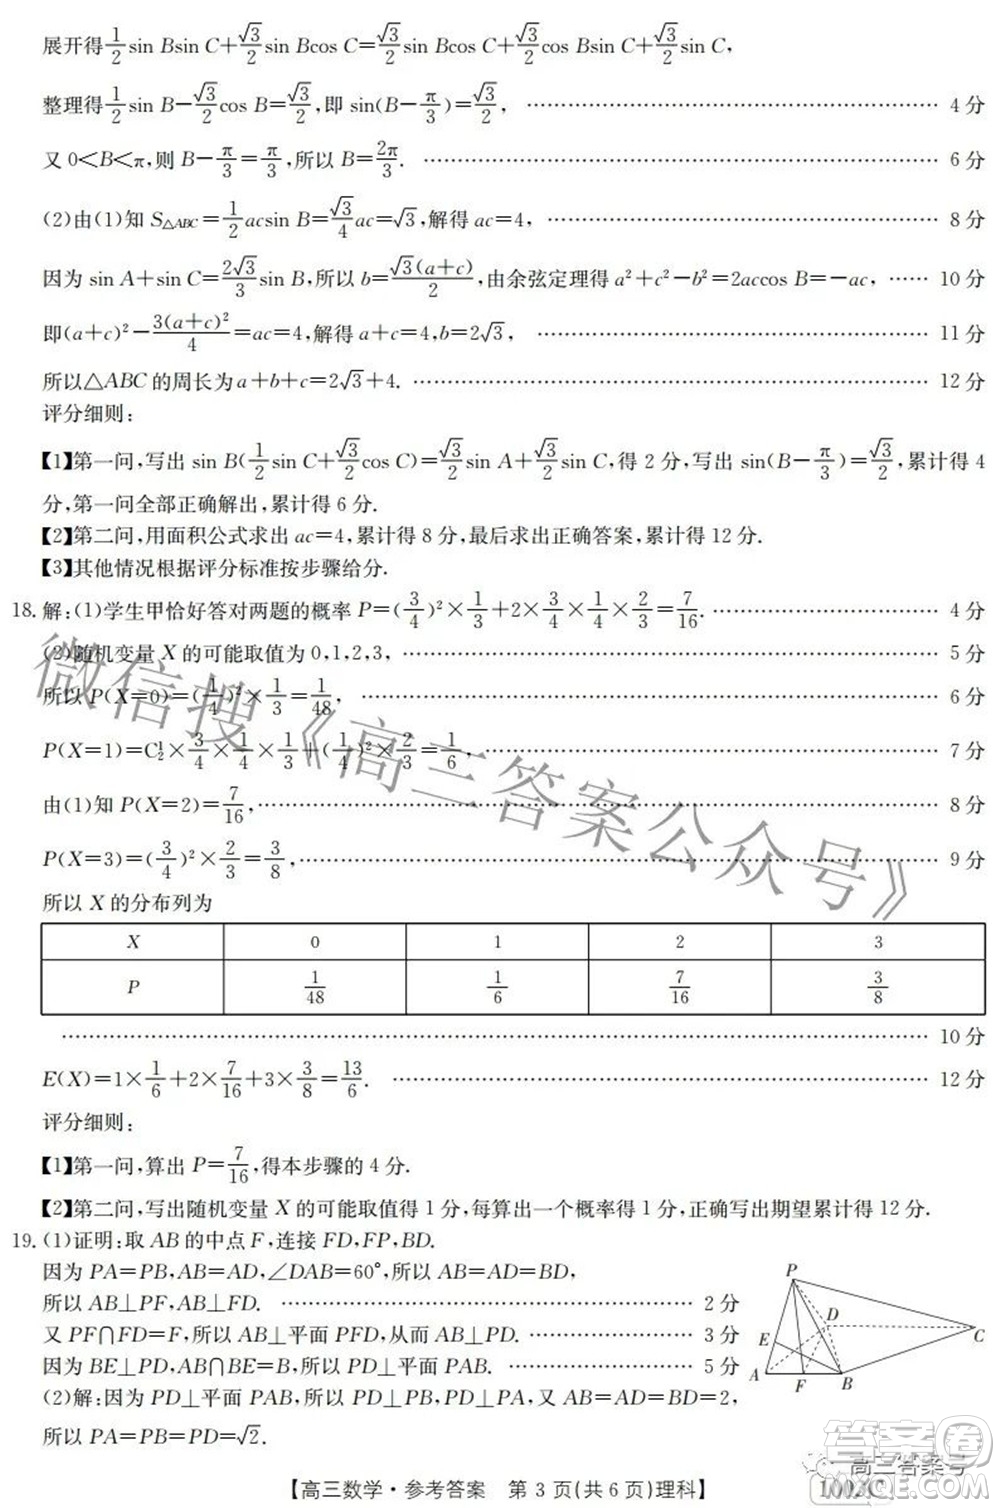 展开得1/2 sin Bsin C+√3/2 sin Bcos C=√3/2 sin Bcos C+√3/2 cos Bsin C+√3/2 sin C,
整理得1/2 sin B−√3/2 cos B=√3/2,即 sin(B−π/3)=√3/2, …… 4 分
又 0<B<π,则 B−π/3=π/3,所以 B=2π/3. …… 6 分
(2)由(1)知 S△ABC=1/2 acsin B=√3/4 ac=√3,解得 ac=4, …… 8 分
因为 sin A+sin C=2√3/3 sin B,所以 b=√3(a+c)/2,由余弦定理得 a²+c²−b²=2accos B=−ac, …… 10 分
即(a+c)²−3(a+c)²/4=ac=4,解得 a+c=4,b=2√3, …… 11 分
所以△ABC 的周长为 a+b+c=2√3+4. …… 12 分
评分细则:
【1】第一问,写出 sin B(1/2 sin C+√3/2 cos C)=√3/2 sin A+√3/2 sin C,得 2 分,写出 sin(B−π/3)=√3/2,累计得 4
分,第一问全部正确解出,累计得 6 分.
【2】第二问,用面积公式求出 ac=4,累计得 8 分,最后求出正确答案,累计得 12 分.
【3】其他情况根据评分标准按步骤给分.
18. 解:(1)学生甲恰好答对两题的概率 P=(3/4)²×1/3+2×3/4×1/4×2/3=7/16. …… 4 分
(2)随机变量 X 的可能取值为 0,1,2,3, …… 5 分
所以 P(X=0)=(1/4)²×1/3=1/48, …… 6 分
P(X=1)=C₂¹×3/4×1/4×1/3+(1/4)²×2/3=1/6, …… 7 分
由(1)知 P(X=2)=7/16, …… 8 分
P(X=3)=(3/4)²×2/3=3/8, …… 9 分
所以 X 的分布列为
X 0 1 2 3
P 1/48 1/6 7/16 3/8
…… 10 分
E(X)=1×1/6+2×7/16+3×3/8=13/6. …… 12 分
评分细则:
【1】第一问,算出 P=7/16,得本步骤的 4 分.
【2】第二问,写出随机变量 X 的可能取值得 1 分,每算出一个概率得 1 分,正确写出期望累计得 12 分.
19. (1)证明:取 AB 的中点 F,连接 FD,FP,BD.
因为 PA=PB,AB=AD,∠DAB=60°,所以 AB=AD=BD,
所以 AB⊥PF,AB⊥FD. …… 2 分
又 PF∩FD=F,所以 AB⊥平面 PFD,从而 AB⊥PD. …… 3 分
因为 BE⊥PD,AB∩BE=B,所以 PD⊥平面 PAB. …… 5 分
(2)解:因为 PD⊥平面 PAB,所以 PD⊥PB,PD⊥PA,又 AD=BD=2,
所以 PA=PB=PD=√2.
P
D
C
E
A
F
B
【高三数学·参考答案 第 3 页(共 6 页)理科】
1003C
微信搜《高三答案公众号》
高三答案号